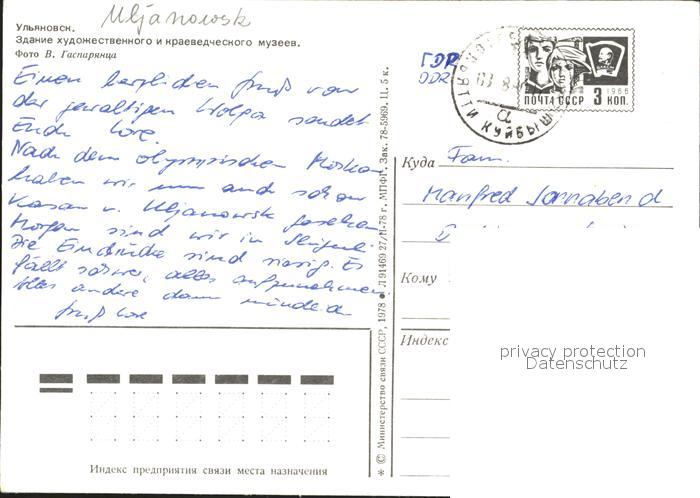 Uljanowsk
Ульяновск.
Здание художественного и краеведческого музеев.
Фото В. Гаспарянца
Einen herzlichen Gruß von
der gewaltigen Wolga sendet
Lore.
Nach dem olympischen Moskau
haben wir nun auch schon
Kasan u. Uljanowsk gesehen.
Morgen sind wir in
Die Eindrücke sind riesig. Es
fällt schwer, alles aufzunehmen.
Alles andere dann mündlich
Gruß Lore
ГДР
DDR
ПОЧТА СССР 3 КОП.
1966
КУЙБЫШ
а
Куда Fam.
Manfred Sonnabend
Кому
Индекс
privacy protection
Datenschutz
* © Министерство связи СССР, 1978 ● Л 91469 27/II-78 г. МПФГ. Зак. 78-5969. Ц. 5 к.
Индекс предприятия связи места назначения